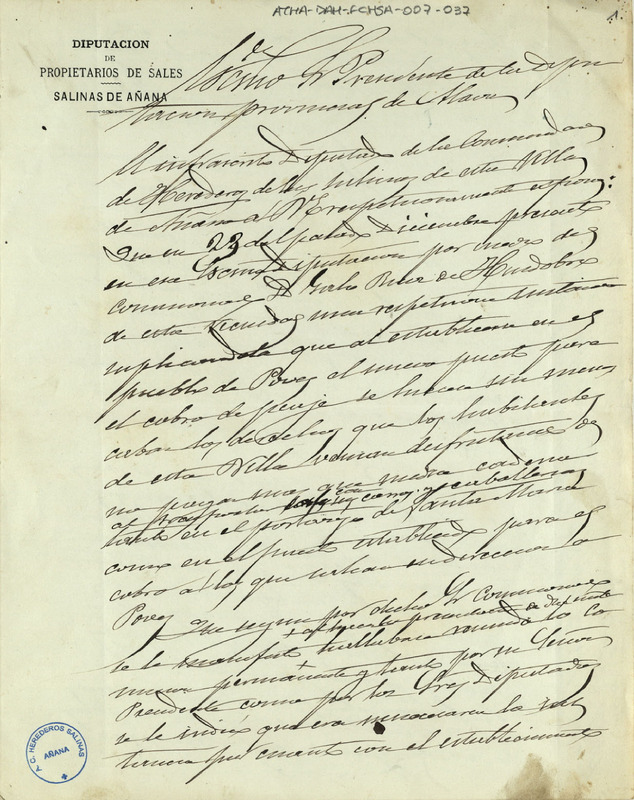 ACHA-DAH-FCHSA-007-037
1.
DIPUTACION
DE
PROPIETARIOS DE SALES
SALINAS DE AÑANA
Escmo Sr Presidente de la Dipu
tacion provincial de Alava
El infrascrito Diputado de la Comunidad
de Herederos de las Salinas de esta Villa
de Añana a V. E. respetuosamente espone:
Que en 23 del pasado Diciembre presentó
en esa Escma Diputacion por medio del
comisionado D. Ruiz de Huidobro
de esta vecindad una respetuosa instancia
suplicandola que al establecerse en el
pueblo de Poves el nuevo puesto para
el cobro de peaje se hiciera sin menos
cabar los derechos que los habitantes
de esta Villa venian disfrutando de
no pagar mas que media cadena
carros y caballerias
tanto en el portazgo de Santa Maria
como en el puesto establecido para el
cobro a los que salian en direccion a
Poves Que segun por dicho Sr Comisionado
se le manifestó hallabase reunida la Co
mision permanente y tanto por su Señor
Presidente como por los Sres Diputados
se le indicó que era innecesaria la ins
tancia por cuanto con el establecimiento
Y C. HEREDEROS SALINAS
AÑANA